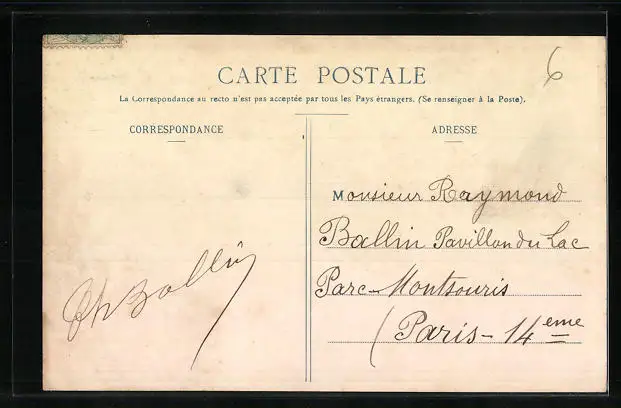 6
CARTE POSTALE
La Correspondance au recto n'est pas acceptée par tous les Pays étrangers. (Se renseigner à la Poste).
CORRESPONDANCE
ADRESSE
Monsieur Raymond
Ballin Pavillon du Lac
Parc-Montsouris
(Paris-14eme